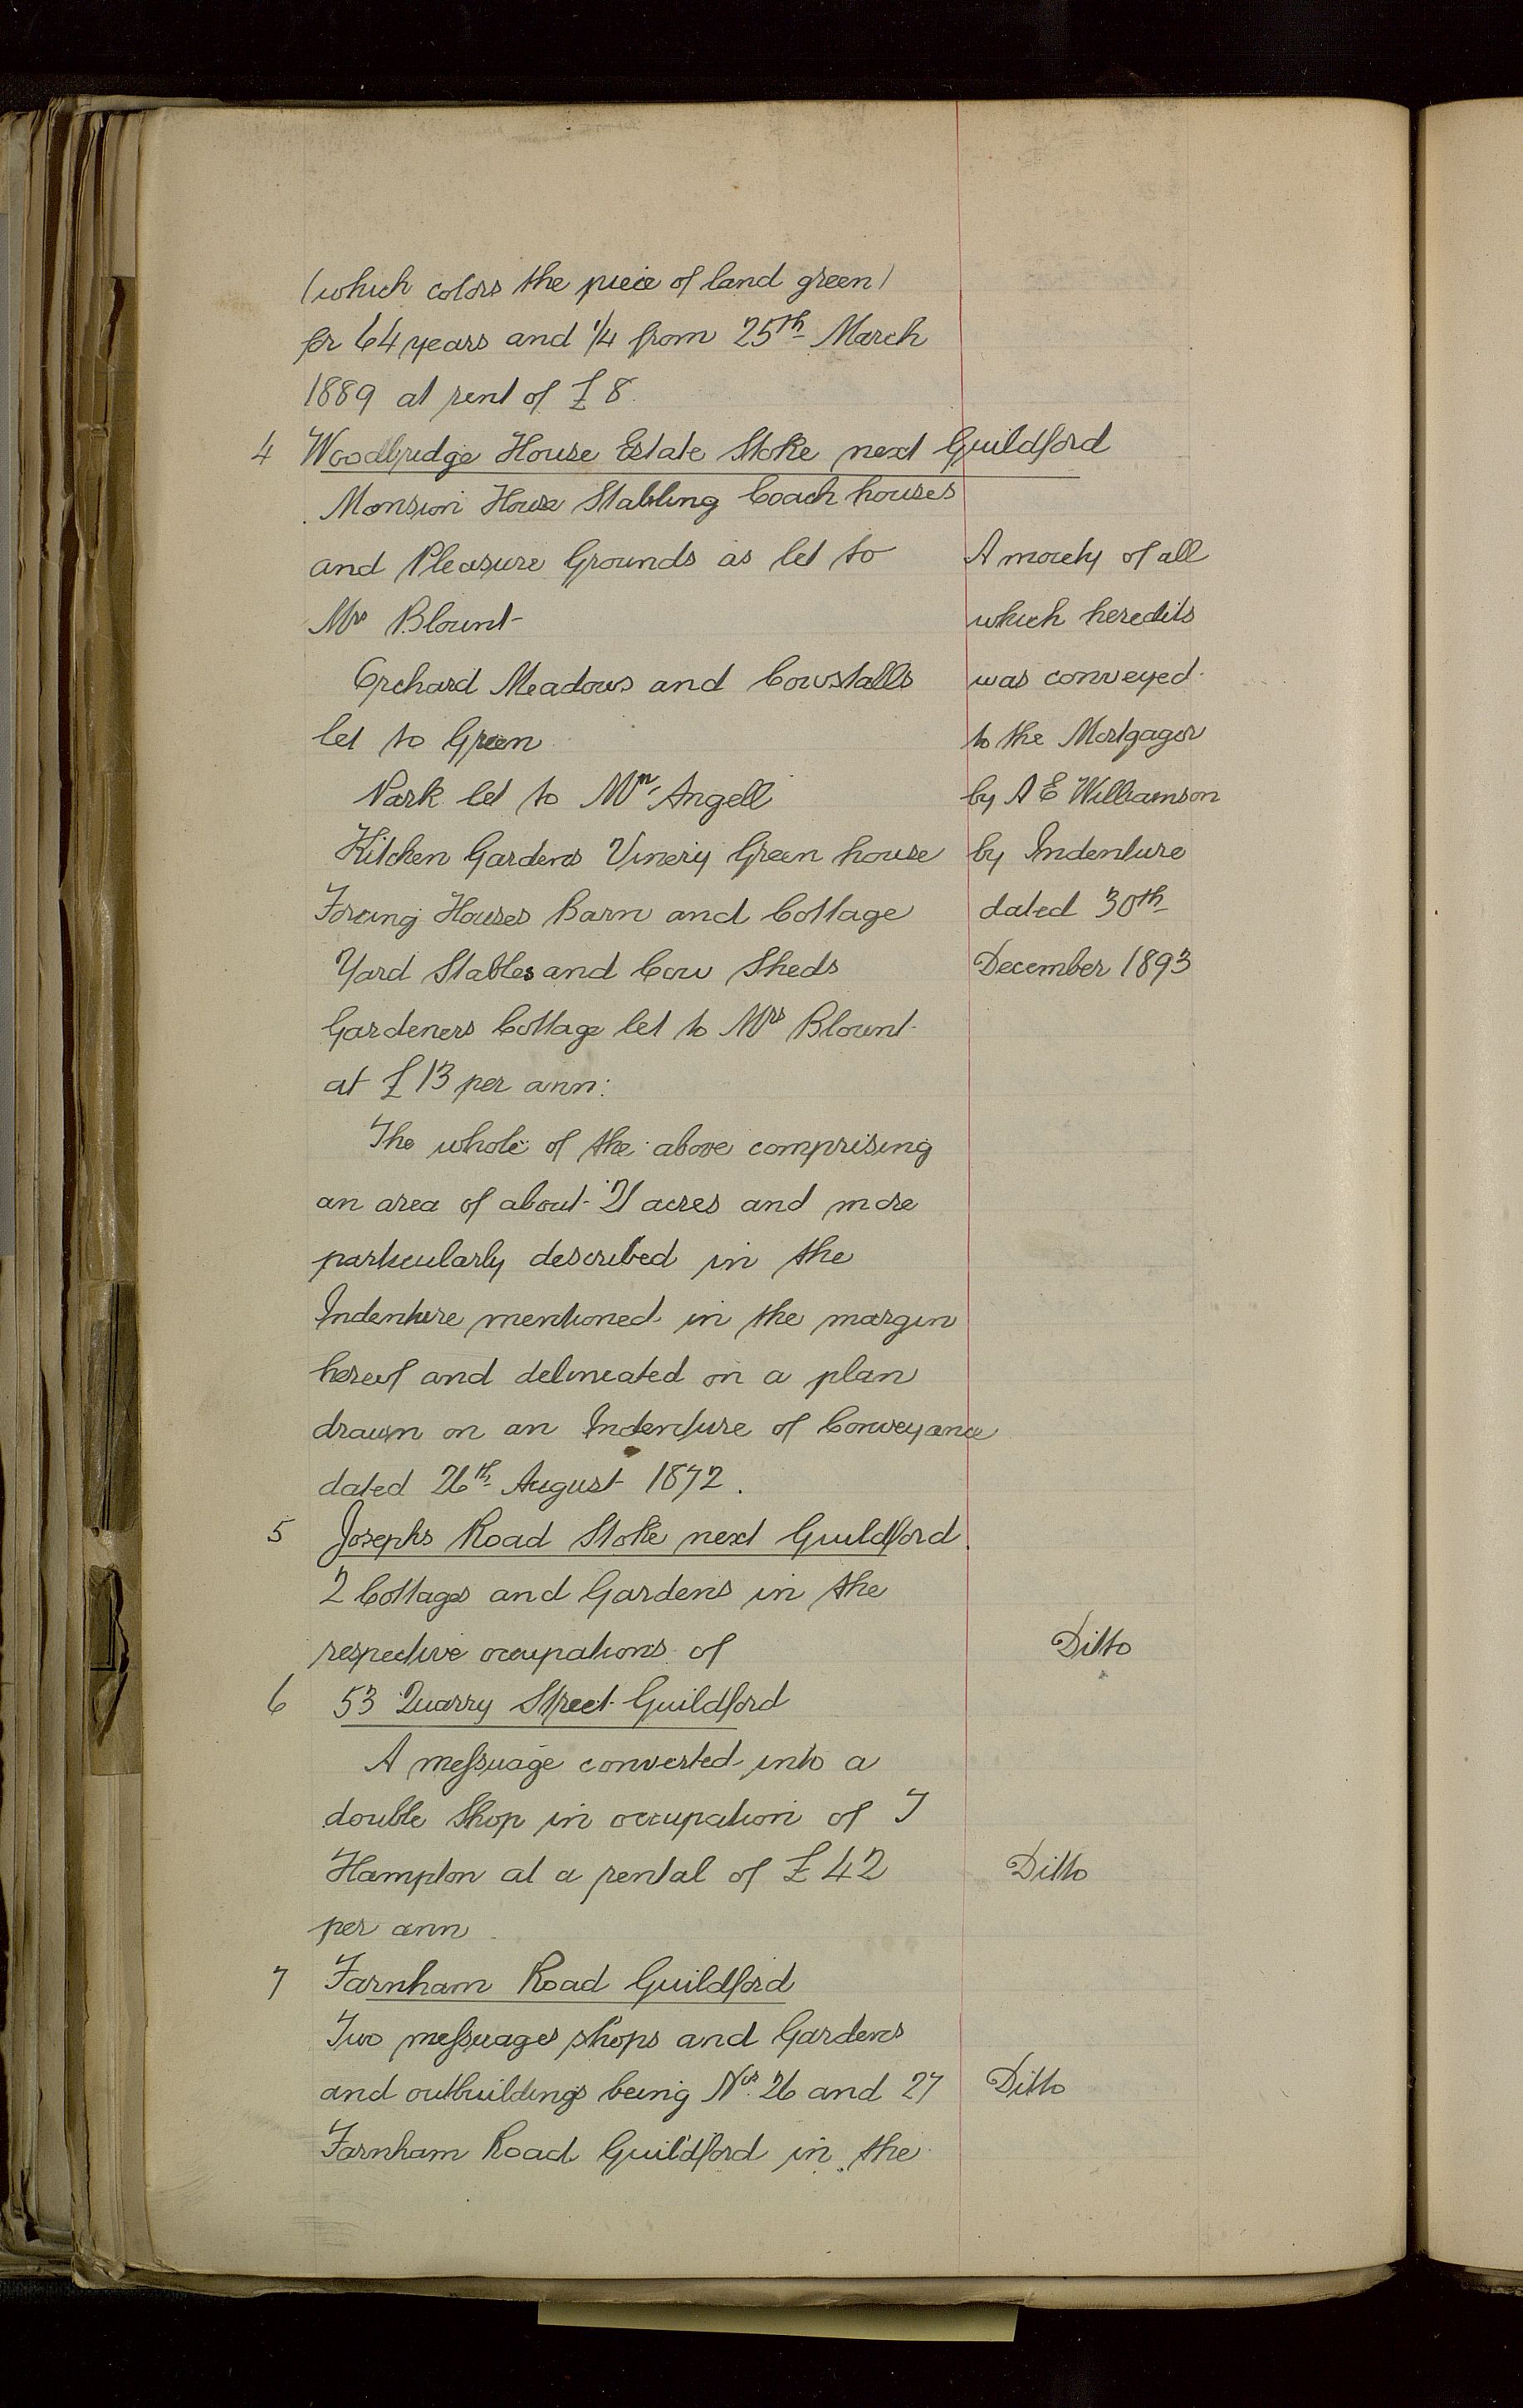 (which colors the piece of land green)
for 64 years and 1/4 from 25th March
1889 at rent of £8.
4 Woodbridge House Estate Stoke next Guildford
Mansion House Stabling Coach houses
and Pleasure Grounds as let to
Mrs Blount
Orchard Meadows and Cowstalls
let to Green
Park let to Mr Angell
Kitchen Gardens Vinery Green house
Forcing Houses Barn and Cottage
Yard Stables and Cow Sheds
Gardeners Cottage let to Mrs Blount
at £13 per ann:
The whole of the above comprising
an area of about 21 acres and more
particularly described in the
Indenture mentioned in the margin
hereof and delineated on a plan
drawn on an Indenture of Conveyance
dated 26th August 1872.
A moiety of all
which heredits
was conveyed
to the Mortgagor
by A E Williamson
by Indenture
dated 30th
December 1893
5 Josephs Road Stoke next Guildford
2 Cottages and Gardens in the
respective occupations of
Ditto
6 53 Quarry Street Guildford
A messuage converted into a
double shop in occupation of T
Hampton at a rental of £42
per ann
Ditto
7 Farnham Road Guildford
Two messuages shops and Gardens
and outbuildings being Nos. 26 and 27
Farnham Road Guildford in the
Ditto